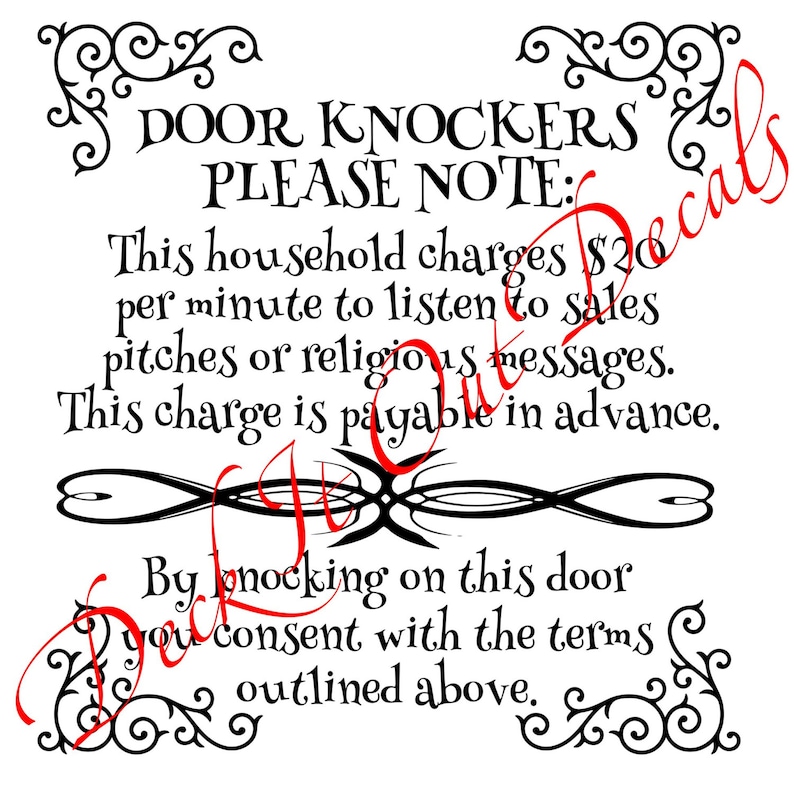 DOOR KNOCKERS
PLEASE NOTE:
This household charges $20
per minute to listen to sales
pitches or religious messages.
This charge is payable in advance.
By knocking on this door
you consent with the terms
outlined above.
Deck It Out Decals